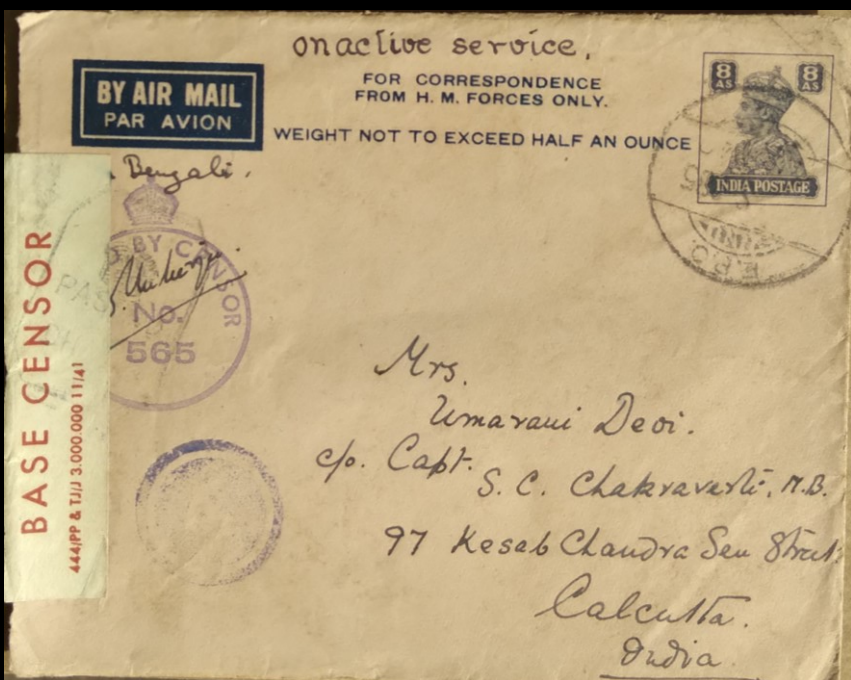 onactive service.
FOR CORRESPONDENCE
FROM H. M. FORCES ONLY.
WEIGHT NOT TO EXCEED HALF AN OUNCE
BY AIR MAIL
PAR AVION
8 AS 8 AS
INDIA POSTAGE
Bengali.
BY CENSOR
No.
565
BASE CENSOR
444/PP & TJ/J 3.000.000 11/41
Mrs.
Umarani Devi.
c/o. Capt.
S. C. Chakravarti, M.B.
97 Kesab Chandra Sen Street
Calcutta.
India.